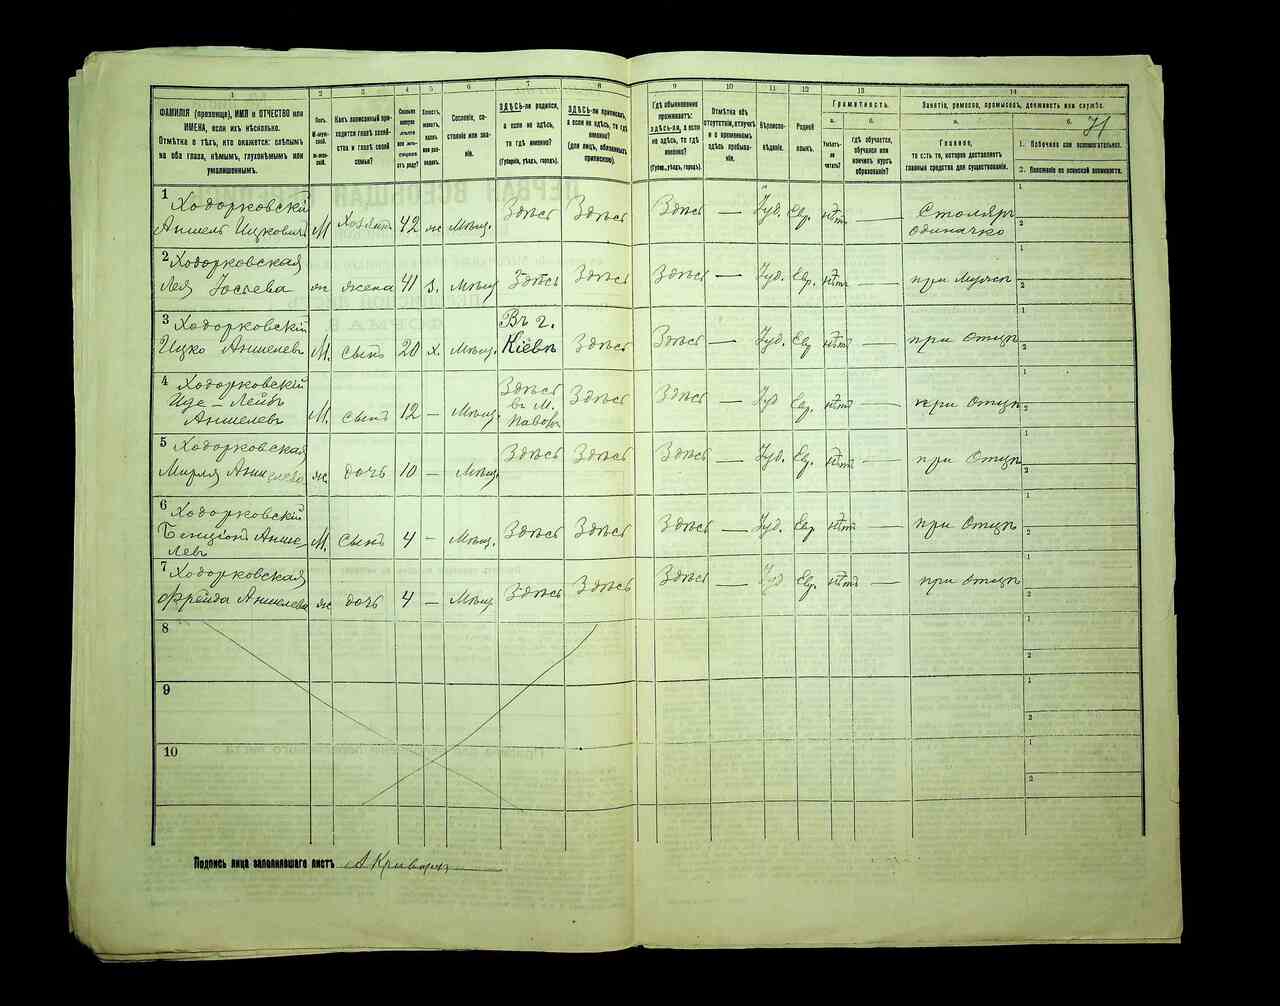 1
2
3
4
5
6
7
8
9
10
11
12
13
14
ФАМИЛІЯ (прозвище), ИМЯ и ОТЧЕСТВО или
ИМЕНА, если ихъ нѣсколько.
Отмѣтка о тѣхъ, кто окажется: слѣпымъ
на оба глаза, нѣмымъ, глухонѣмымъ или
умалишеннымъ.
Полъ.
М-муж-
ской.
Ж-женскій.
Какъ записанный при-
ходится главѣ хозяй-
ства и главѣ своей
семьи?
Сколько
минуло
лѣтъ
Холостъ,
женатъ,
вдовъ
или раз-
веденъ.
Сословіе, со-
стояніе или зва-
ніе.
ЗДѢСЬ-ли родился,
а если не здѣсь,
то гдѣ именно?
(Губернія, уѣздъ, городъ).
ЗДѢСЬ-ли приписанъ,
а если не здѣсь, то гдѣ
именно?
(для лицъ, обязанныхъ
припискою).
Гдѣ обыкновенно
проживаетъ:
здѣсь-ли, а если
не здѣсь, то гдѣ
именно?
(Губер., уѣздъ, городъ).
Отмѣтка объ
отсутствіи, отлучкѣ
и о временномъ
здѣсь пребыва-
ніи.
Вѣроиспо-
вѣданіе.
Родной
языкъ.
Грамотность.
а.
Умѣетъ-
ли
читать?
б.
гдѣ обучается,
обучался или
кончилъ курсъ
образованія?
Занятіе, ремесло, промыселъ, должность или служба.
а.
Главное,
то есть то, которое доставляетъ
главныя средства для существованія.
б.
71
1. Побочное или вспомогательное.
2. Положеніе по воинской повинности.
1 Ходорковскій
Аншель Ицковичъ М. Хозяинъ 42 ж Мѣщ. Здѣсь Здѣсь Здѣсь — Іуд. Евр. нѣтъ — Столяръ
одиночко
1
2
2 Ходорковская
Лея Іосьева ж жена 41 з. Мѣщ Здѣсь Здѣсь Здѣсь — Іуд. Евр. нѣтъ — при Мужѣ
1
2
3 Ходорковскій Въ г.
Ицко Аншелевъ М. сынъ 20 х. Мѣщ. Кіевѣ Здѣсь Здѣсь — Іуд. Евр нѣтъ — при Отцѣ
1
2
4 Ходорковскій Здѣсь
Лейбъ въ М.
Аншелевъ М. сынъ 12 — Мѣщ. Здѣсь Здѣсь — Іуд Евр. нѣтъ — при Отцѣ
1
2
5 Ходорковская
Мирля Аншелева ж. дочь 10 — Мѣщ. Здѣсь Здѣсь Здѣсь — Іуд. Ев. нѣтъ — при Отцѣ
1
2
6 Ходорковскій
Бенціонъ Анше-
левъ М. сынъ 4 — Мѣщ. Здѣсь Здѣсь Здѣсь — Іуд. Евр нѣтъ — при Отцѣ
1
2
7 Ходорковская
Фрейда Аншелева ж дочь 4 — Мѣщ Здѣсь Здѣсь Здѣсь — Іуд Евр. нѣтъ — при отцѣ
1
2
8
1
2
9
1
2
10
1
2
Подпись лица заполнявшаго листъ